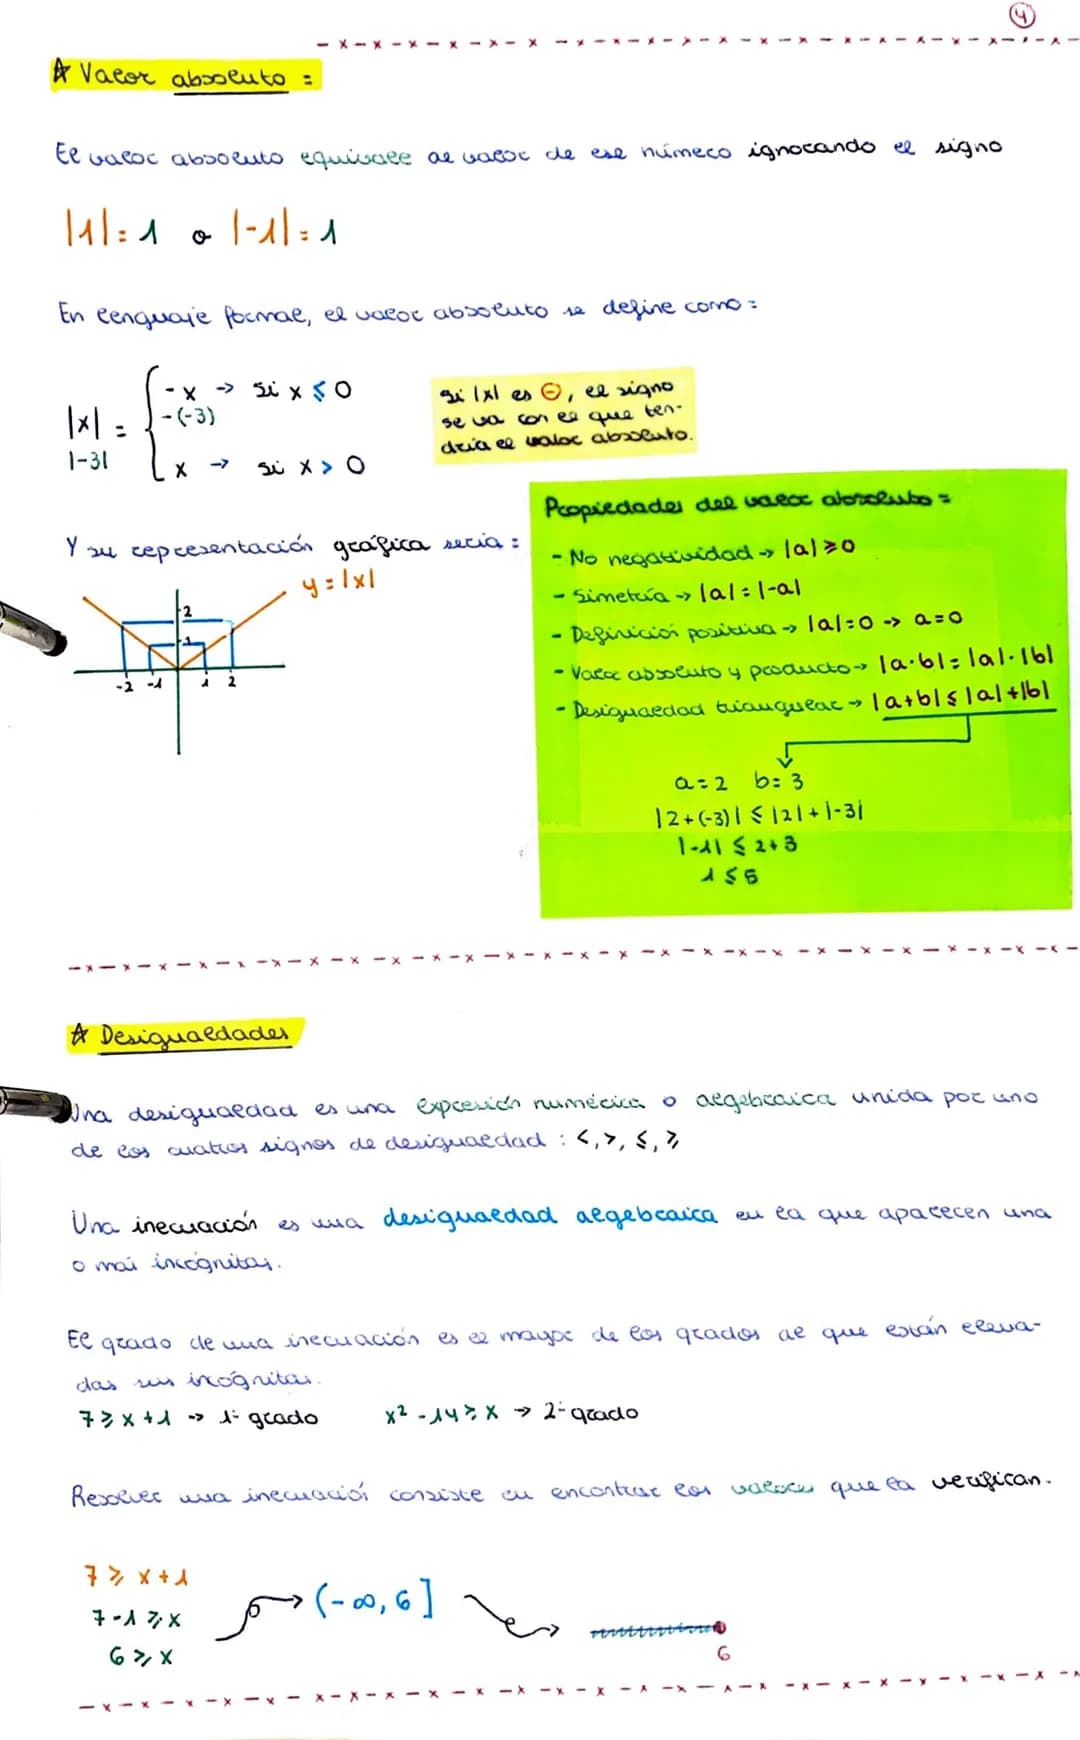 4
☆ Valor absoluto :
El valor absoluto equivale al valor de ese número ignorando el signo
|1| = 1 o |-1| = 1
En lenguaje formal, el valor absoluto se define como :
|x| = { -x → si x ≤ 0
|-3| -(-3)
x → si x > 0
si |x| es ⊖, el signo
se va con el que ten-
dría el valor absoluto.
Y su representación gráfica sería :
y = |x|
2
1
-2 -1 1 2
Propiedades del valor absoluto =
- No negatividad → |a| ≥ 0
- Simetría → |a| = |-a|
- Definición positiva → |a| = 0 → a = 0
- Valor absoluto y producto → |a·b| = |a|·|b|
- Desigualdad triangular → |a+b| ≤ |a|+|b|
a = 2 b = 3
|2+(-3)| ≤ |2|+|-3|
|-1| ≤ 2+3
1 ≤ 5
☆ Desigualdades
Una desigualdad es una expresión numérica o algebraica unida por uno
de los cuatros signos de desigualdad : <, >, ≤, ≥
Una inecuación es una desigualdad algebraica en la que aparecen una
o más incógnitas.
El grado de una inecuación es el mayor de los grados al que están eleva-
das sus incógnitas.
7 ≥ x + 1 → 1º grado x² - 14 ≥ x → 2º grado
Resolver una inecuación consiste en encontrar los valores que la verifican.
7 ≥ x + 1
7 - 1 ≥ x
6 ≥ x
(-∞, 6]
6